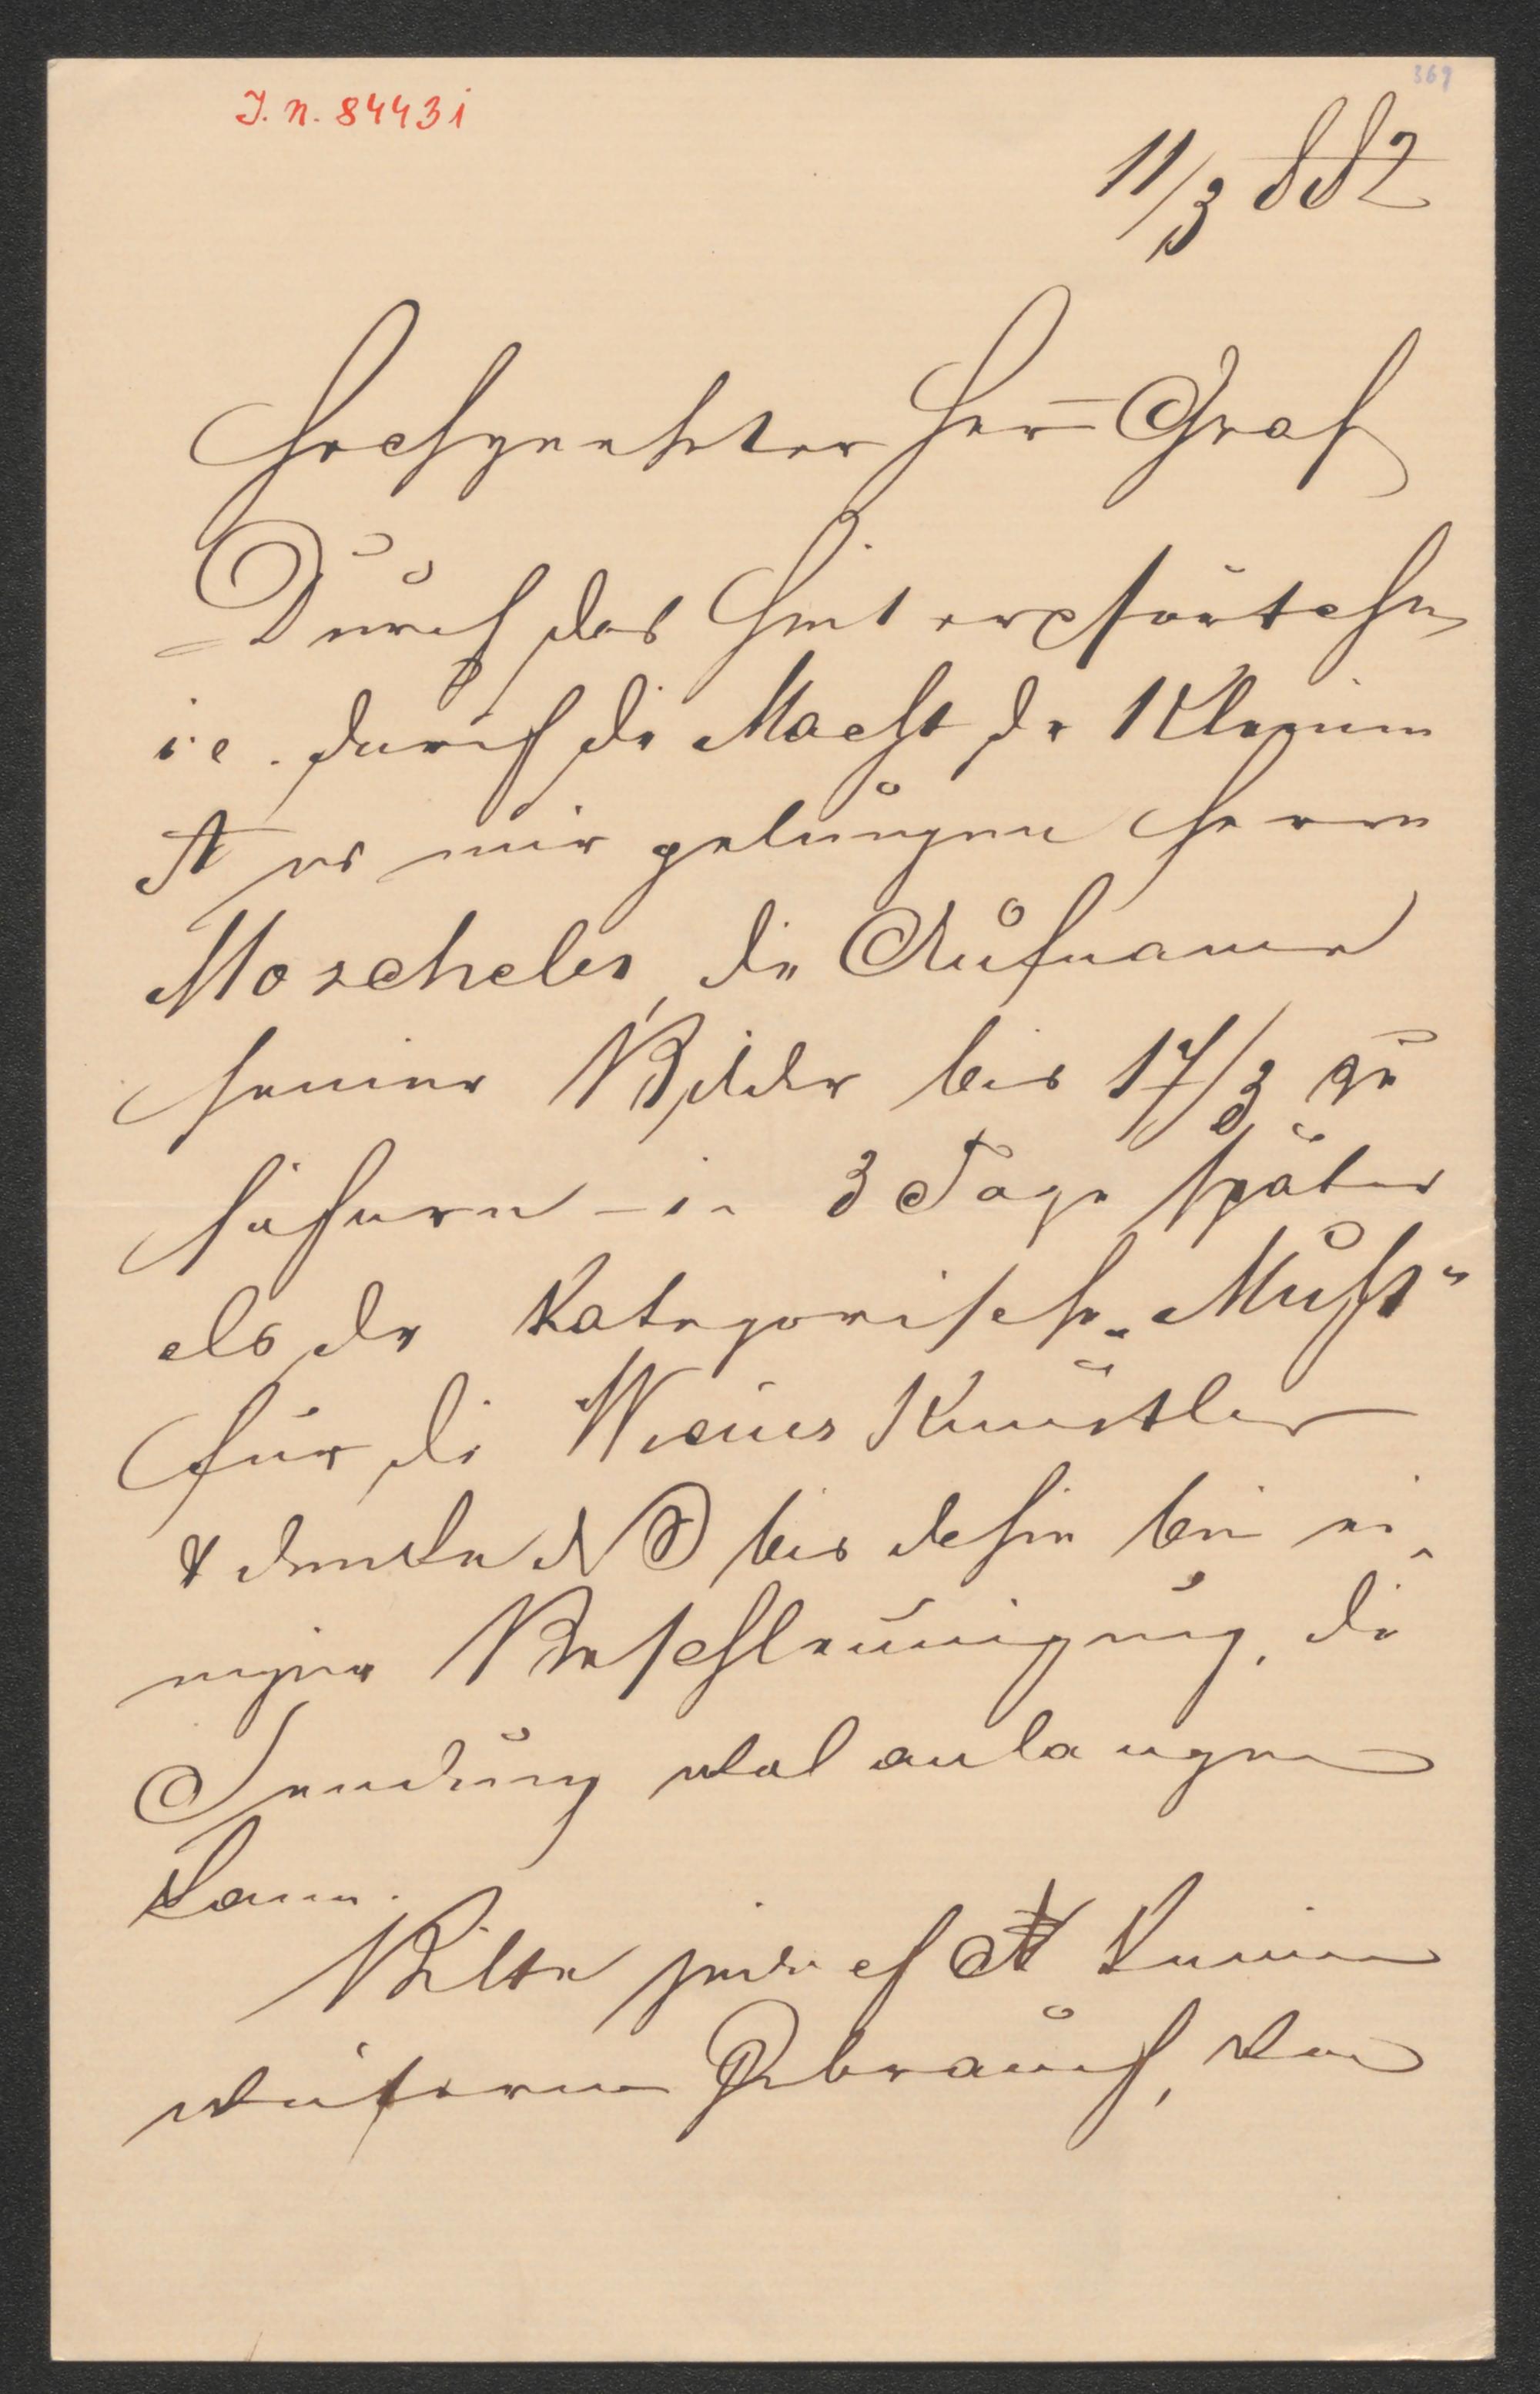 369
I. N. 84431
11/3 882
Hochgeehrter Herr Graf
Durch das Hinterpförtchen
i. e. durch die Macht der Kleinen
ist es mir gelungen Herrn
Moscheles, die Aufname
seiner Bilder bis 17/3 zu
sichern – i. e. 3 Tage später
als der kategorische „Muß“
für die Wiener Künstler
& denke daß bis dahin bei ei-
niger Beschleunigung, die
Sendung wol anlangen
kann.
Bitte jedoch ist keinen
weiteren Gebrauch, von